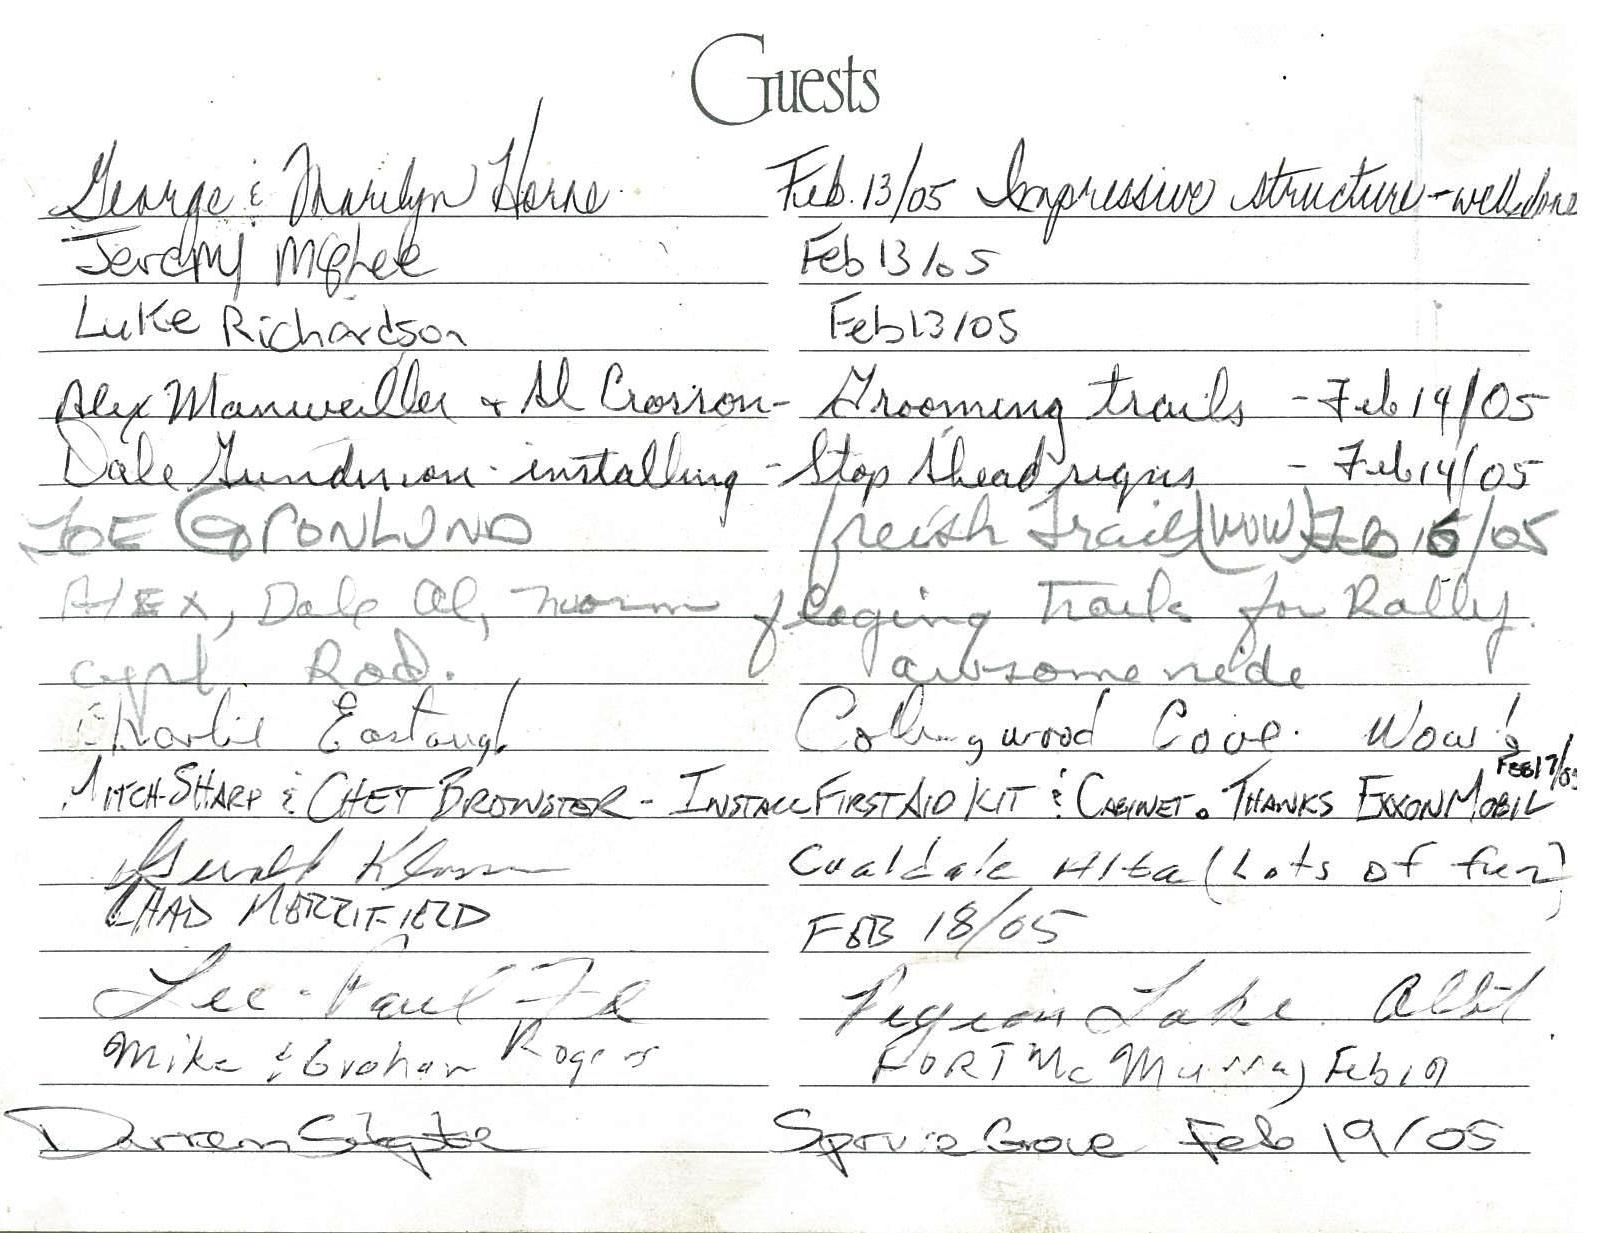 Guests
George & Marilyn Horne Feb. 13/05 Impressive structure - well done
Jeremy McGhee Feb 13/05
Luke Richardson Feb 13/05
Alex Manweiller & Al Crosson - Grooming trails - Feb 14/05
Dale Gunderson - installing - Stop Ahead signs - Feb 14/05
JOE GRONLUND freish Trail (WOW) Feb 16/05
Alex, Dale Al, norm flaging Trails for Rally.
Rod. awsome ride
Charlie Eastaugh Collingwood Cove. Wow!
MITCH SHARP & CHET BROWSTER - INSTALL FIRST AID KIT & CABINET. THANKS EXXON MOBIL FEB 17/05
Gerald Coaldale Alta (Lots of fun)
CHAD MERRIFIELD FEB 18/05
Lee-Paul Pigeon Lake. Alta
Mike & Graham Rogers FORT Mc Murray Feb 19
Darren Spruce Grove Feb 19/05